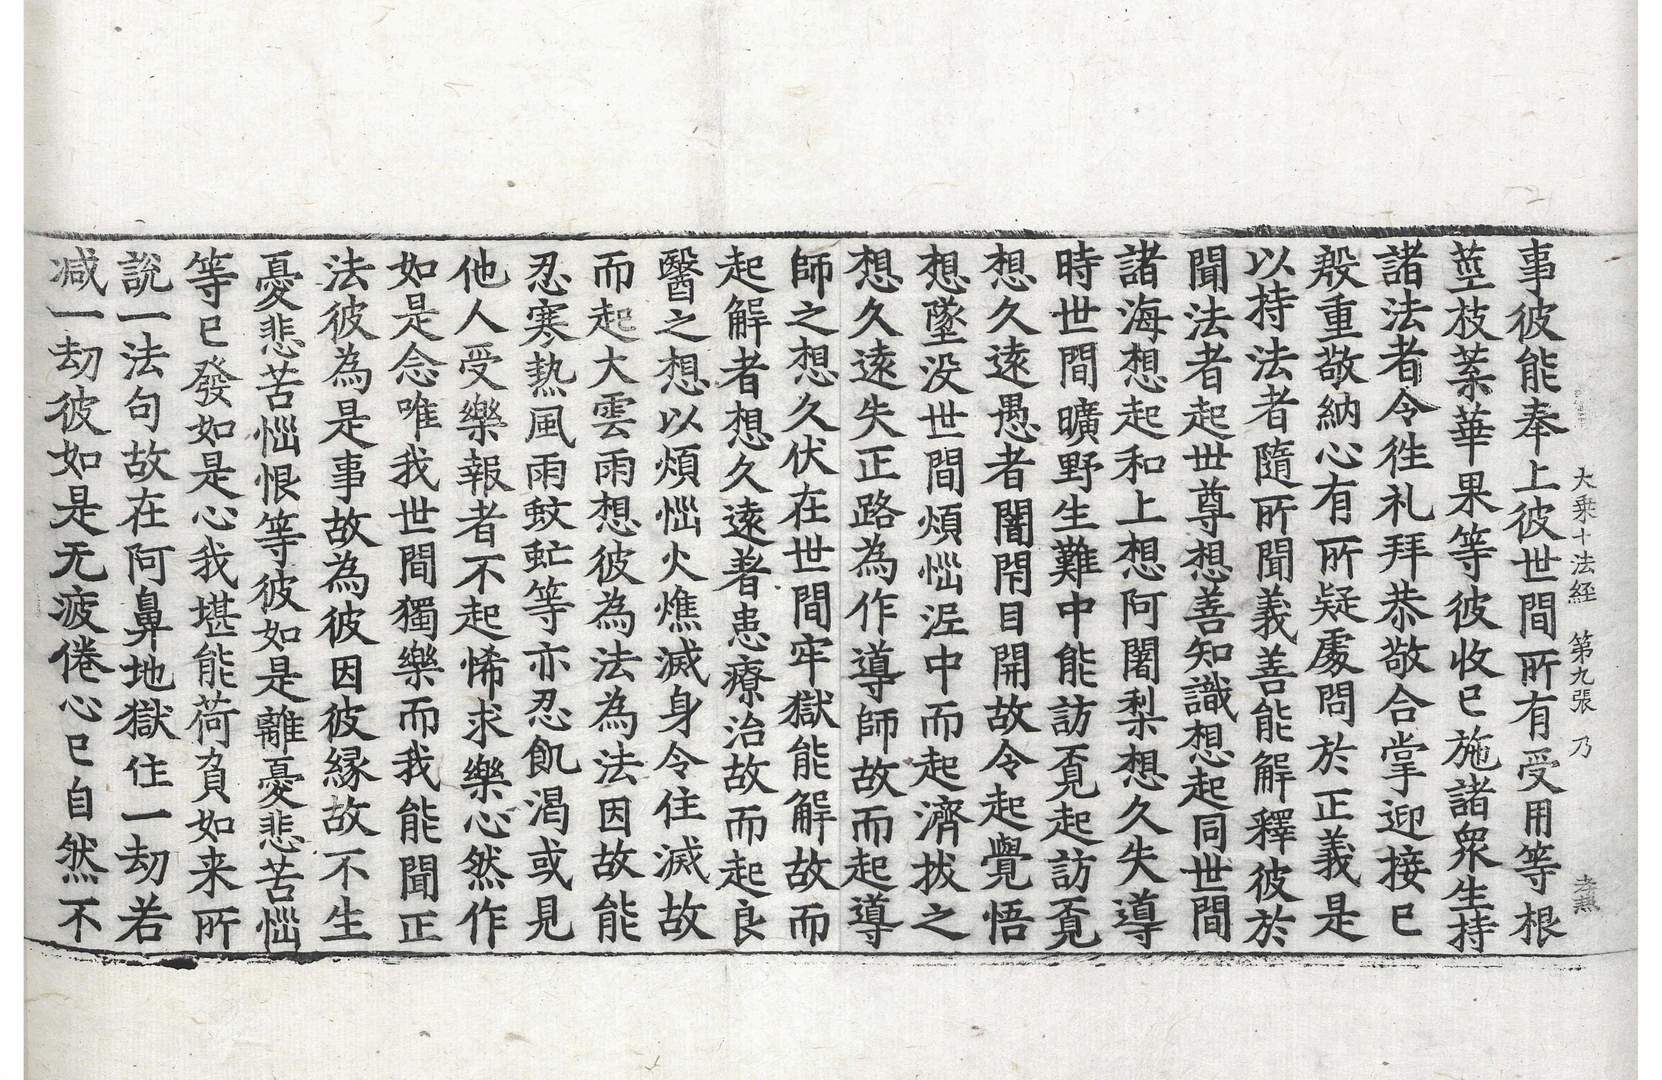 大乘十法経 第九張 乃 孝㷱
事彼能奉上彼世間所有受用等根
莖枝葉華果等彼收已施諸衆生持
諸法者令徃礼拜恭敬合掌迎接已
殷重敬納心有所疑處問於正義是
以持法者隨所聞義善能解釋彼於
聞法者起世尊想善知識想起同世間
諸海想起和上想阿闍梨想久失導
時世間曠野生難中能訪覔起訪覔
想久遠愚者闇閇目開故令起覺悟
想墜没世間煩惱泥中而起濟拔之
想久遠失正路為作導師故而起導
師之想久伏在世間牢獄能解故而
起解者想久遠著患療治故而起良
醫之想以煩惱火燋滅身令住滅故
而起大雲雨想彼為法為法因故能
忍寒熱風雨蚊虻等亦忍飢渴或見
他人受樂報者不起悕求樂心然作
如是念唯我世間獨樂而我能聞正
法彼為是事故為彼因彼縁故不生
憂悲苦惱恨等彼如是離憂悲苦惱
等已發如是心我堪能荷負如来所
說一法句故在阿鼻地獄住一劫若
减一劫彼如是无疲倦心已自然不